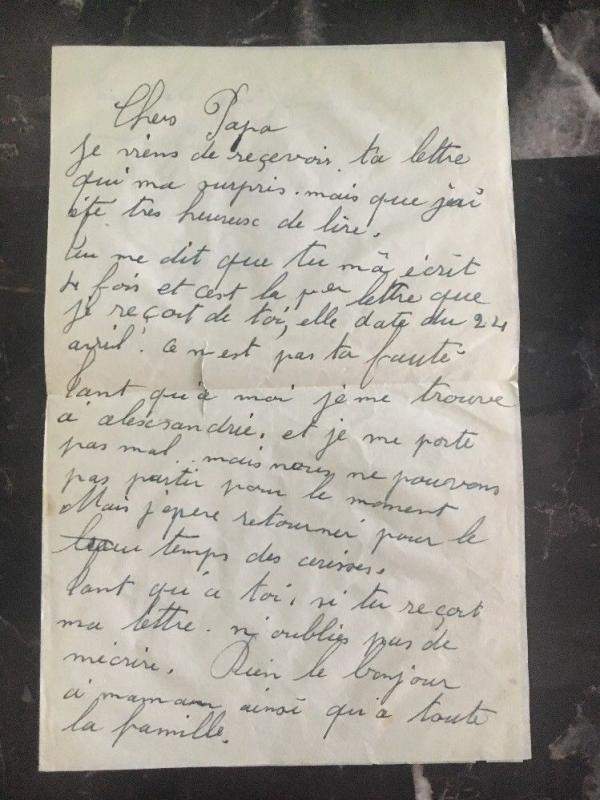 Chers Papa
je viens de reçevoir ta lettre
qui ma surpris. mais que j'ai
été tres heureux de lire.
Tu me dit que tu m'a écrit
4 fois et cest la per lettre que
je reçoit de toi, elle date du 24
avril. Ce n'est pas ta faute
Tant qu'à moi je me trouve
à alexsandrie. et je me porte
pas mal.. mais nous ne pouvons
pas partir pour le moment
Mais j'epere retourner pour le
temps des cerises.
Tant qu'a toi, si tu reçoit
ma lettre. n'oublies pas de
mécrire. Bien le bonjour
a maman ainsi qu'a toute
la famille.